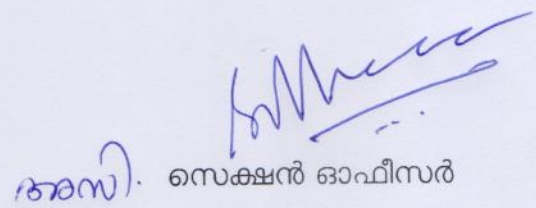 അസി. സെക്ഷൻ ഓഫീസർ